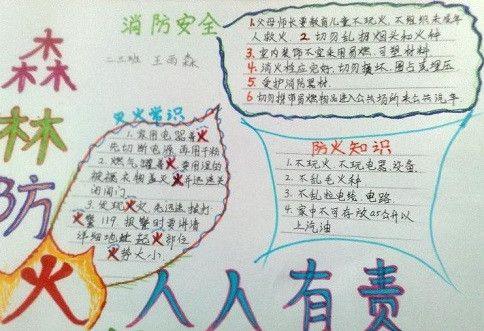 消防安全
二三班 王雨森
1.父母师长要教育儿童不玩火,不组织未成年
人救火 2.切勿乱扔烟头和火种
3.室内装饰不宜采用易燃、可塑材料
4.消火栓应完好,切勿损坏、圈占或埋压
5.爱护消防器材
6.切勿携带易燃物品进入公共场所乘公共汽车
灭火常识
1.家用电器着火
先切断电源 再用干粉
2.燃气罐着火 要用湿的
被褥衣物盖灭火并迅速关
闭阀门
3.发现火灾 迅速拨打
火警119 报警时要讲清
详细地址起火部位
火势大小
防火知识
1.不玩火 不玩电器设备
2.不乱毛火种
3.不乱拉电线 电路
4.家中不可存放0.5公升以
上汽油
森林防火
人人有责